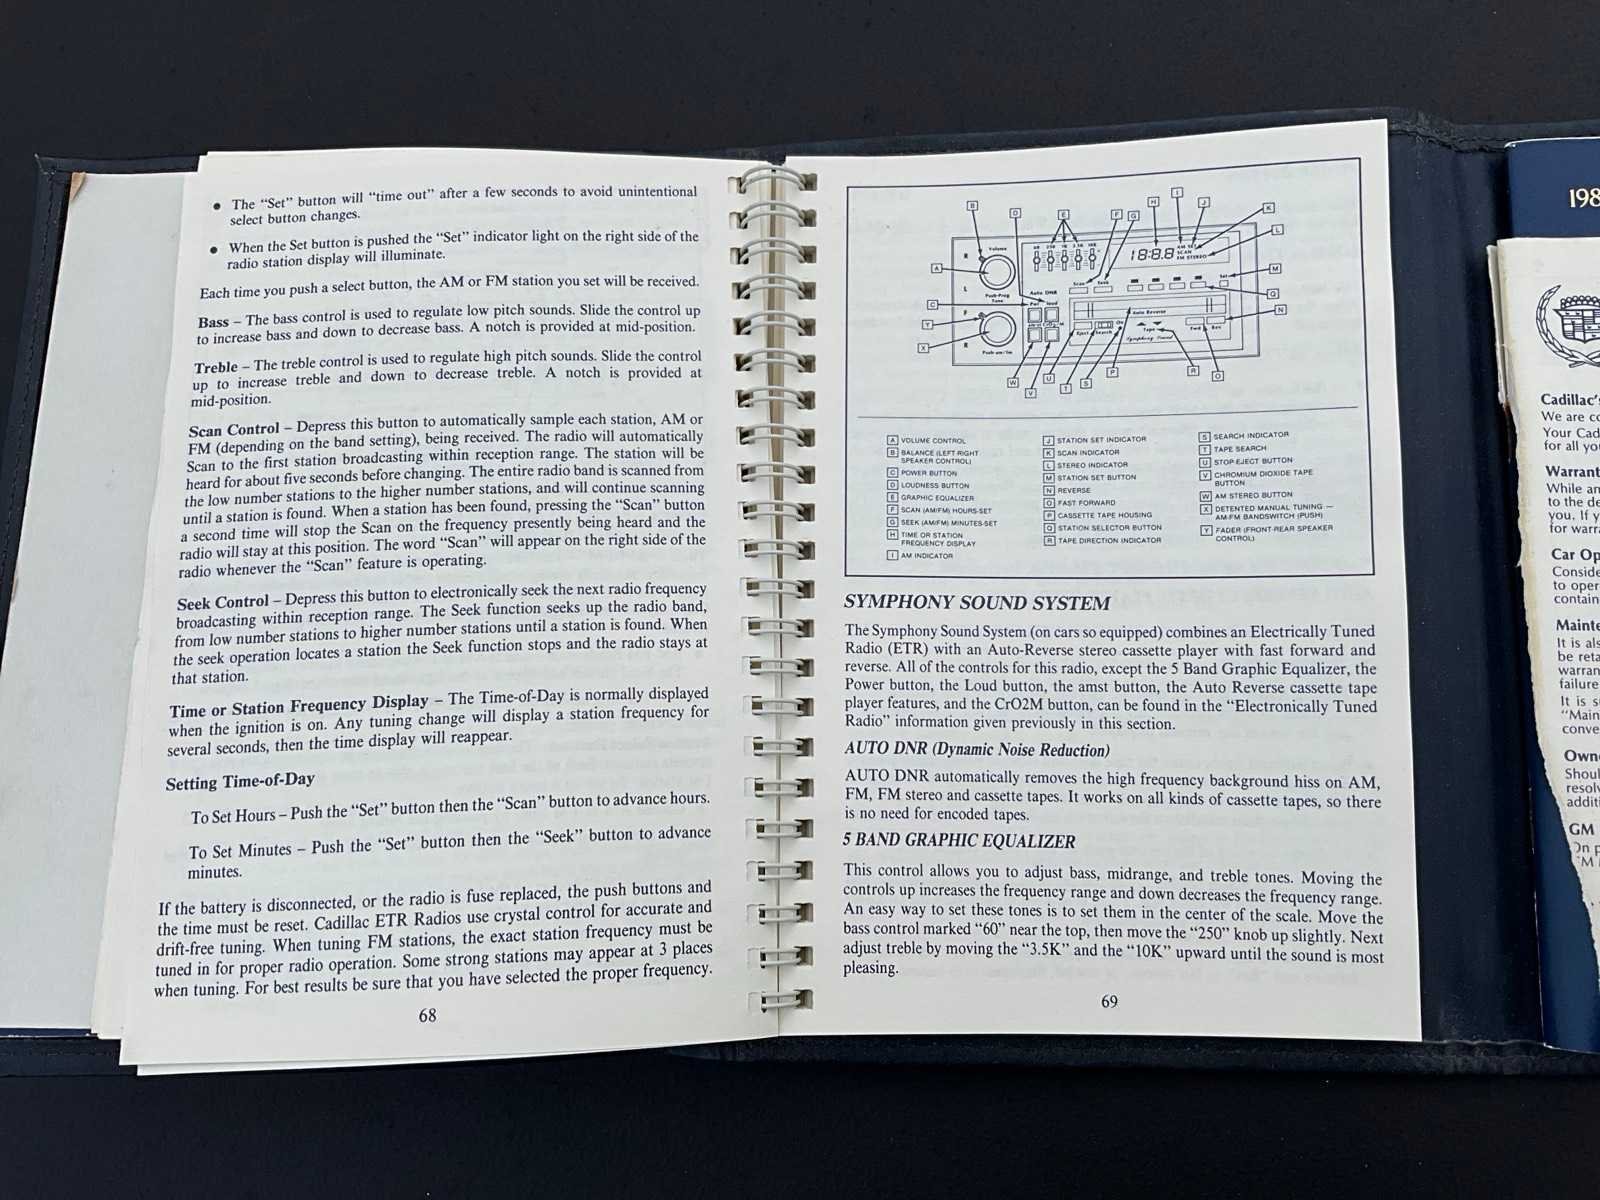 ● The “Set” button will “time out” after a few seconds to avoid unintentional
select button changes.
● When the Set button is pushed the “Set” indicator light on the right side of the
radio station display will illuminate.
Each time you push a select button, the AM or FM station you set will be received.
Bass – The bass control is used to regulate low pitch sounds. Slide the control up
to increase bass and down to decrease bass. A notch is provided at mid-position.
Treble – The treble control is used to regulate high pitch sounds. Slide the control
up to increase treble and down to decrease treble. A notch is provided at
mid-position.
Scan Control – Depress this button to automatically sample each station, AM or
FM (depending on the band setting), being received. The radio will automatically
Scan to the first station broadcasting within reception range. The station will be
heard for about five seconds before changing. The entire radio band is scanned from
the low number stations to the higher number stations, and will continue scanning
until a station is found. When a station has been found, pressing the “Scan” button
a second time will stop the Scan on the frequency presently being heard and the
radio will stay at this position. The word “Scan” will appear on the right side of the
radio whenever the “Scan” feature is operating.
Seek Control – Depress this button to electronically seek the next radio frequency
broadcasting within reception range. The Seek function seeks up the radio band,
from low number stations to higher number stations until a station is found. When
the seek operation locates a station the Seek function stops and the radio stays at
that station.
Time or Station Frequency Display – The Time-of-Day is normally displayed
when the ignition is on. Any tuning change will display a station frequency for
several seconds, then the time display will reappear.
Setting Time-of-Day
To Set Hours – Push the “Set” button then the “Scan” button to advance hours.
To Set Minutes – Push the “Set” button then the “Seek” button to advance
minutes.
If the battery is disconnected, or the radio is fuse replaced, the push buttons and
the time must be reset. Cadillac ETR Radios use crystal control for accurate and
drift-free tuning. When tuning FM stations, the exact station frequency must be
tuned in for proper radio operation. Some strong stations may appear at 3 places
when tuning. For best results be sure that you have selected the proper frequency.
68
B D E F G H I J K
L
A M
C Q
Y N
X
W V U T S P R O
Volume
R
L
Push-Prog
Tone
F
R
Push-am/fm
Auto DNR
Pwr loud
Scan Seek
18:8.8
AM SET
SCAN
FM STEREO
Set
Auto Reverse
Eject Search
Tape
Fwd Rev
Symphony Sound
A VOLUME CONTROL
B BALANCE (LEFT-RIGHT
SPEAKER CONTROL)
C POWER BUTTON
D LOUDNESS BUTTON
E GRAPHIC EQUALIZER
F SCAN (AM/FM) HOURS-SET
G SEEK (AM/FM) MINUTES-SET
H TIME OR STATION
FREQUENCY DISPLAY
I AM INDICATOR
J STATION SET INDICATOR
K SCAN INDICATOR
L STEREO INDICATOR
M STATION SET BUTTON
N REVERSE
O FAST FORWARD
P CASSETTE TAPE HOUSING
Q STATION SELECTOR BUTTON
R TAPE DIRECTION INDICATOR
S SEARCH INDICATOR
T TAPE SEARCH
U STOP-EJECT BUTTON
V CHROMIUM DIOXIDE TAPE
BUTTON
W AM STEREO BUTTON
X DETENTED MANUAL TUNING —
AM-FM BANDSWITCH (PUSH)
Y FADER (FRONT-REAR SPEAKER
CONTROL)
SYMPHONY SOUND SYSTEM
The Symphony Sound System (on cars so equipped) combines an Electrically Tuned
Radio (ETR) with an Auto-Reverse stereo cassette player with fast forward and
reverse. All of the controls for this radio, except the 5 Band Graphic Equalizer, the
Power button, the Loud button, the amst button, the Auto Reverse cassette tape
player features, and the CrO2M button, can be found in the “Electronically Tuned
Radio” information given previously in this section.
AUTO DNR (Dynamic Noise Reduction)
AUTO DNR automatically removes the high frequency background hiss on AM,
FM, FM stereo and cassette tapes. It works on all kinds of cassette tapes, so there
is no need for encoded tapes.
5 BAND GRAPHIC EQUALIZER
This control allows you to adjust bass, midrange, and treble tones. Moving the
controls up increases the frequency range and down decreases the frequency range.
An easy way to set these tones is to set them in the center of the scale. Move the
bass control marked “60” near the top, then move the “250” knob up slightly. Next
adjust treble by moving the “3.5K” and the “10K” upward until the sound is most
pleasing.
69
198
Cadillac’s
We are co
Your Cad
for all yo
Warrant
While an
to the de
you. If y
for warra
Car Op
Conside
to oper
contain
Mainte
It is als
be reta
warran
failure
It is s
“Main
conve
Own
Shoul
resolv
additi
GM
On p